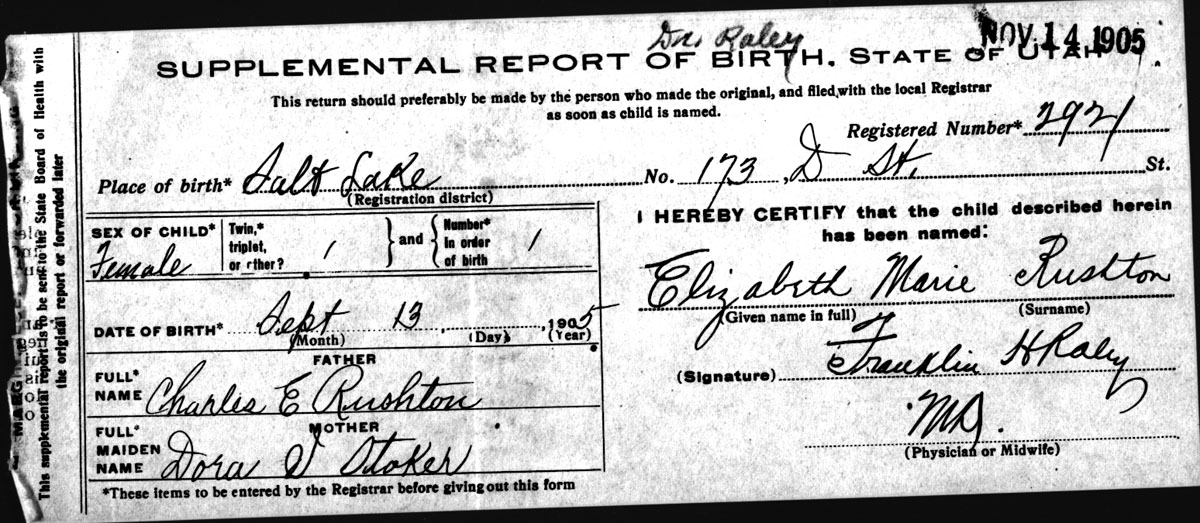 Dr. Raley
NOV 14 1905
SUPPLEMENTAL REPORT OF BIRTH. STATE OF UTAH.
This return should preferably be made by the person who made the original, and filed with the local Registrar
as soon as child is named.
Registered Number* 2921
Place of birth* Salt Lake No. 173 D St. St.
(Registration district)
SEX OF CHILD* Female
Twin,* triplet, or other? 1 } and { Number* in order of birth 1
DATE OF BIRTH* Sept 13, 1905
(Month) (Day) (Year)
FATHER
FULL* NAME Charles E Rushton
MOTHER
FULL* MAIDEN NAME Dora J Stoker
*These items to be entered by the Registrar before giving out this form
I HEREBY CERTIFY that the child described herein
has been named:
Elizabeth Marie Rushton
(Given name in full) (Surname)
(Signature) Franklin H Raley
MD.
(Physician or Midwife)
This supplemental report is to be sent to the State Board of Health with
the original report or forwarded later